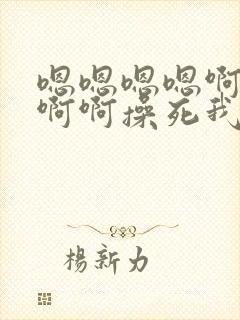 嗯嗯嗯嗯啊
啊啊操死我
楊新力